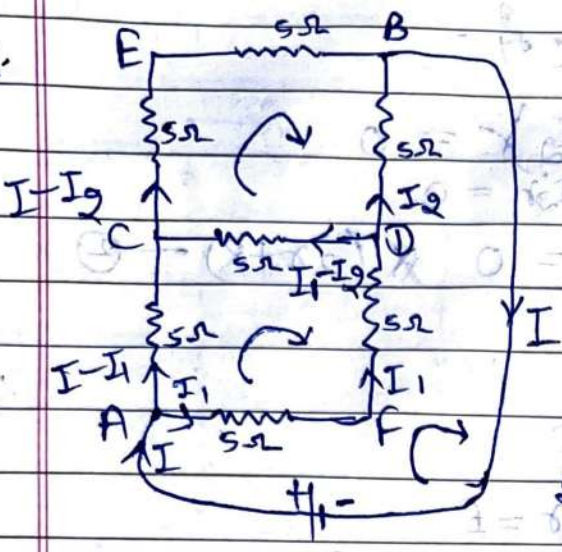 5Ω
E B
5Ω 5Ω
I-I2 I2
C D
5Ω I1-I2
5Ω 5Ω
I
I-I1 I1 I1
A F
5Ω
I
+ -